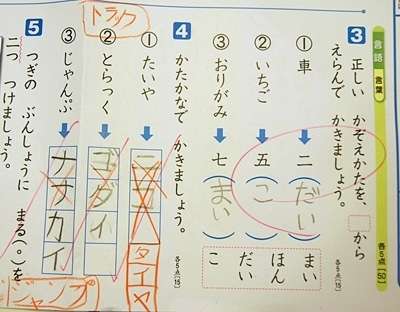 言語
言葉
各5点[50]
3 正しい かぞえかたを、 から
えらんで かきましょう。
各5点[15]
① 車 二(だい)
② いちご 五(こ)
③ おりがみ 七(まい)
まい
ほん
だい
こ
4 かたかなで かきましょう。
各5点[15]
① たいや
タイヤ
② とらっく
ゴダイ
トラック
③ じゃんぷ
ナサカイ
ジャンプ
5 つぎの ぶんしょうに まる(。)を
二つ つけましょう。